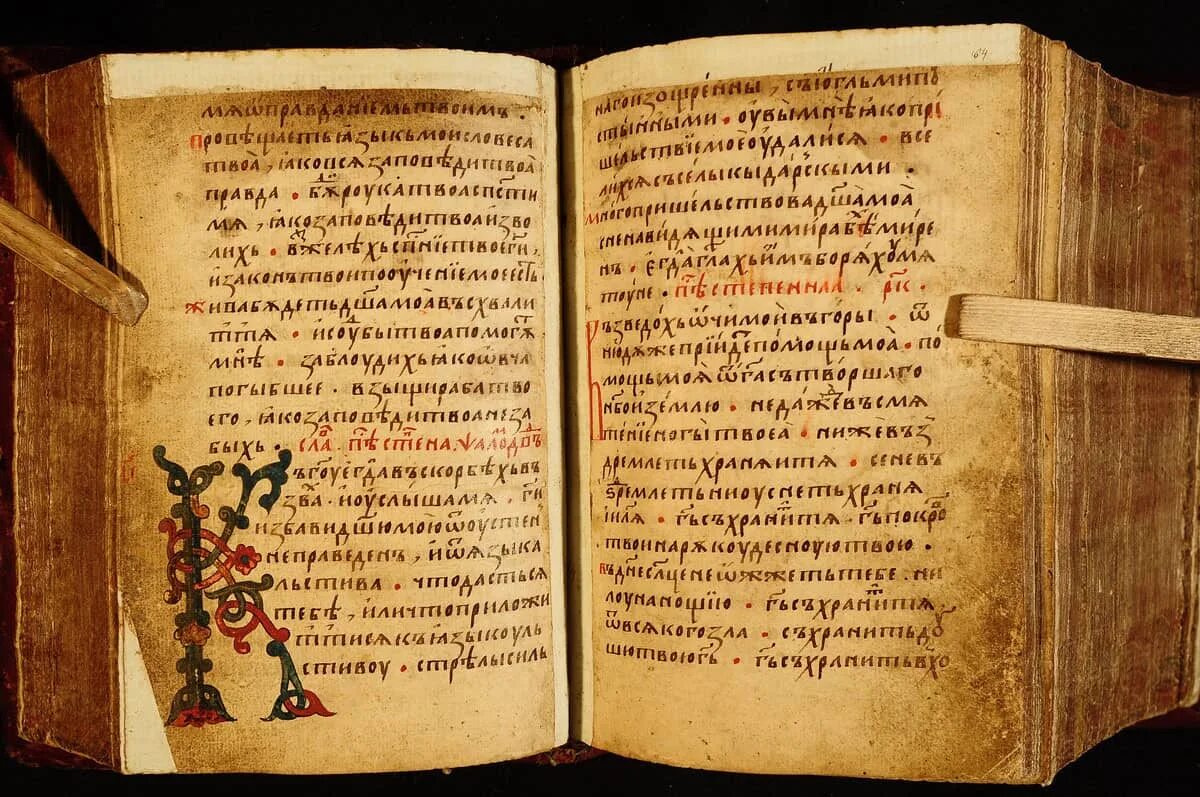 мѧ ѿправданїемь твоимъ .
провѣщаеть ꙗзыкь мои словеса
твоа̀ , ꙗко всѧ заповѣди твоа̀
правда • бꙋ́д роука твоа спⷭ҇ти
мѧ , ꙗко заповѣди твоа изво
лихь • въжⷣелѣхь спⷭ҇нїе твое гⷭ҇и ,
и законъ твои пооученїе мое есть
жива бѫдеть дш҃а моа въсхвали
тть тѧ • и сѫⷣбы твоа помогѫⷮ
мнѣ • заблоудихь ꙗко ѡвча
погыбшее • взыщи раба тво
его , ꙗко заповѣди твоа не за
быхь • слаⷡ . пѣⷭ҇ степена . ѱаⷧ҇омь дв҃дъ
Къ гоу егⷣа въскорбѣхь въ
зваⷯ • и оуслыша мѧ . гⷭ҇и
избави дш҃ѫ мою ѿ оустенъ
неправеденъ , и ѿ ѧзыка
льстива • что дасть сѧ
тебѣ , или что приложи
тть ти сѧ къ ꙗзыкоу ль
стивоу • стрѣлы силь
64
наго изощренны , съ ѫгльми пѹ
стынными • оувы мнѣ ꙗко при́
шельствїе мое оудали сѧ • все
лих сѧ съ селы кыдарⷭ҇скыми .
много пришельствова дш҃а моа̀
с ненавидѧщими мира бѣⷯ мире
нъ • егⷣа гл҃ахь имъ борѧхоу мѧ
тоуне . пѣⷭ҇ степеннаа . рк҃ .
Възведохь ѡчи мои въ горы • ѿ
нюдѫже прїидеⷮ помощь моа̀ . по
мощь моа̀ ѿ гⷭ҇а сътворшаго
нб҃о и землю • не дажⷣь въ смѧ
тенїе ногы твоеа̀ • ниже въз
дремлеть хранѧи тѧ • се не въ
здремлеть ни оуснеть хранѧ
и iи҃лѧ • гь҃ съхранитⷮ тѧ . гь҃ покроⷡ
твои на рѫкоу десноую твою .
въ дн҃е слн҃це не ѡжжеть тебе . ни
лоуна нощїю • гь҃ съхранитⷮ тѧ
ѿ всѧкого зла • съхранить дш҃
шю твою гь҃ • гь҃ съхранить въхо